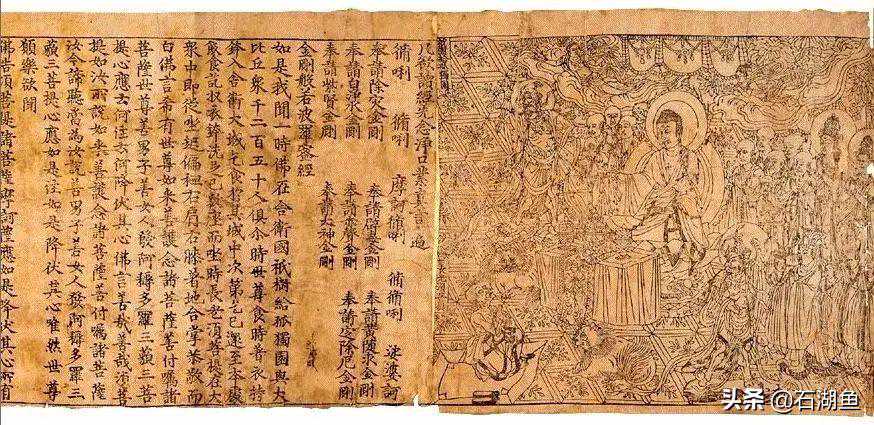 凡欲讀經先念淨口業真言一遍
脩唎 脩唎 摩訶脩唎 脩脩唎 娑婆訶
奉請除灾金剛 奉請辟毒金剛 奉請黃隨求金剛
奉請白淨水金剛 奉請赤聲金剛 奉請定除厄金剛
奉請紫賢金剛 奉請大神金剛
金剛般若波羅蜜經
如是我聞一時佛在舍衛國祇樹給孤獨園與大
比丘衆千二百五十人俱尒時世尊食時著衣持
鉢入舍衛大城乞食於其城中次第乞已還至本處
飯食訖收衣鉢洗足已敷座而坐時長老須菩提在大
衆中即從座起偏袒右肩右膝著地合掌恭敬而
白佛言希有世尊如來善護念諸菩薩善付囑諸
菩薩世尊善男子善女人發阿耨多羅三藐三菩
提心應云何住云何降伏其心佛言善哉善哉須菩
提如汝所說如來善護念諸菩薩善付囑諸菩薩
汝今諦聽當為汝說善男子善女人發阿耨多羅三
藐三菩提心應如是住如是降伏其心唯然世尊
願樂欲聞
佛告須菩提諸菩薩摩訶薩應如是降伏其心所有
头条 @石湖鱼